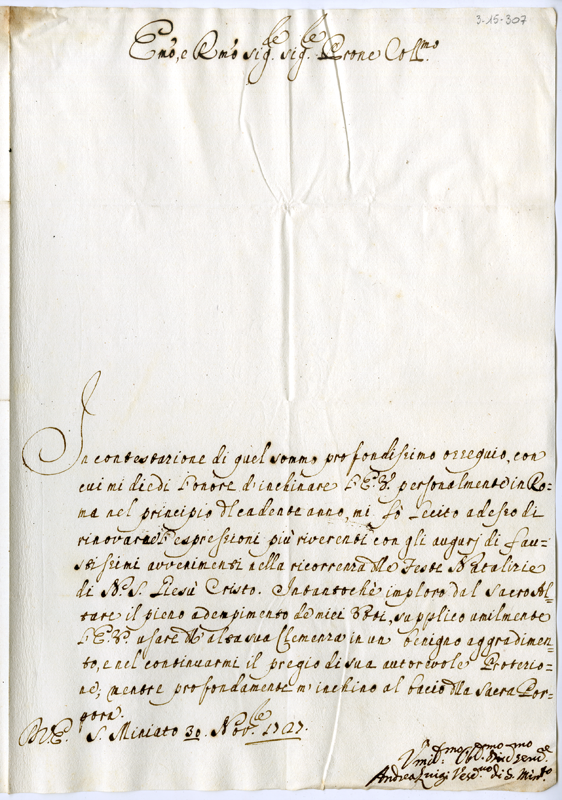 3-15-307
Em̃o, e Rm̃o Sig.re Sig.re Prone Coll.mo
In contestazione di quel sommo profondissimo ossequio, con
cui mi diedi l'onore d'inchinare l'E.V. personalmente in Ro=
ma nel principio del cadente anno, mi fò lecito adesso di
rinovarle l'espressioni più riverenti con gli augurj di fau=
stissimi avvenimenti nella ricorrenza delle Feste Natalizie
di N.ro S. Giesù Cristo. Intantochè imploro dal Sacro Al=
tare il pieno adempimento de miei Voti, supplico umilmente
l'E.V. usare dell'alta sua Clemenza in un benigno aggradimen=
to, e nel continuarmi il pregio di sua autorevole Protezio=
ne; mentre profondamente m'inchino al bacio della Sacra Por=
pora.
D.V.E. S. Miniato 30. Nov.bre 1727.
Umil.mo Obl.mo Div.mo Serv.re
Andrea Luigi Vesc.vo di S. Min.to